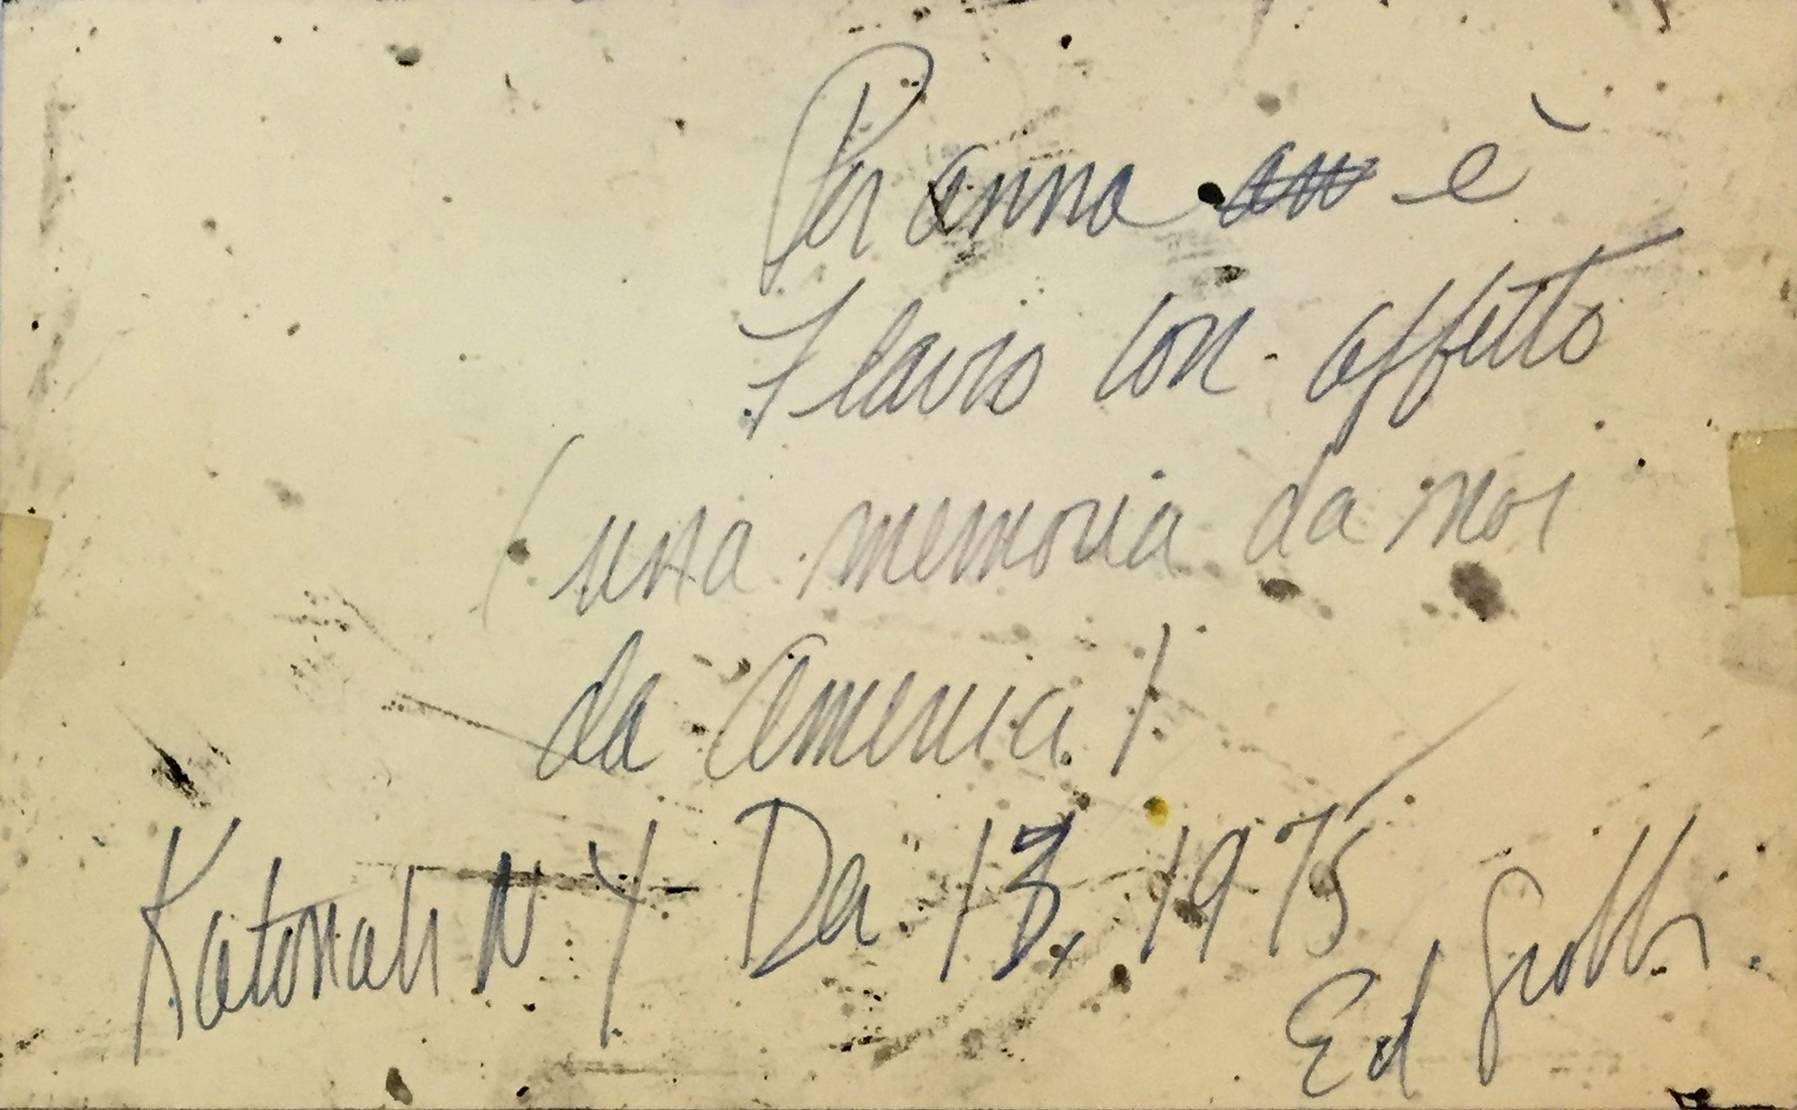 Per anna è
Flavio con affetto
(una memoria da noi
da America)
Katonah N Y De 13, 1975
Ed Giobbi